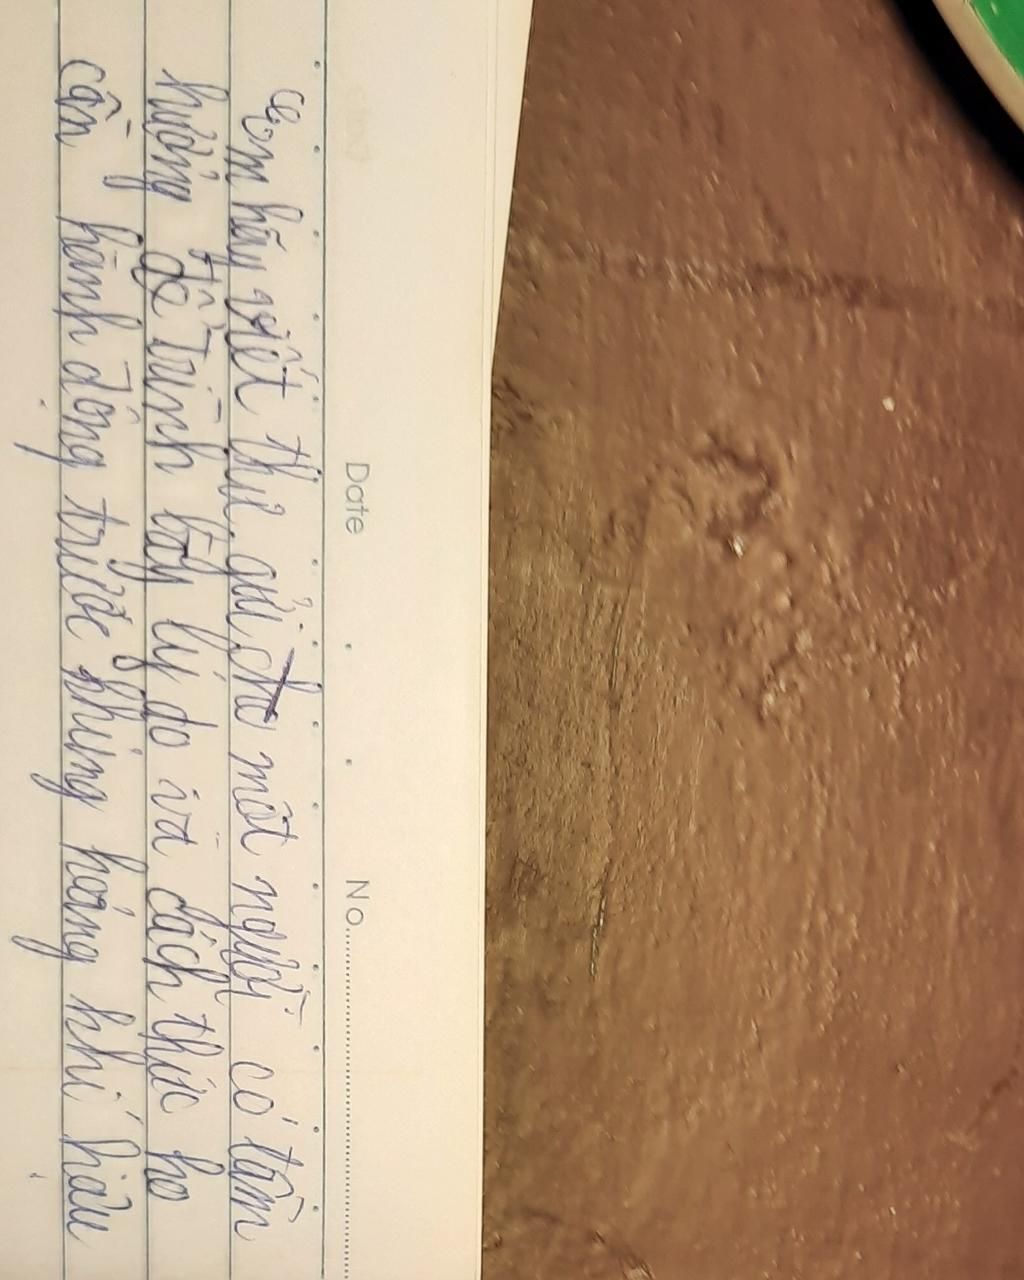 Date . . No.
Em hãy viết thư gửi cho một người có tầm
hưởng để trình bày lý do và cách thức họ
cần hành động trước khủng hoảng khí hậu